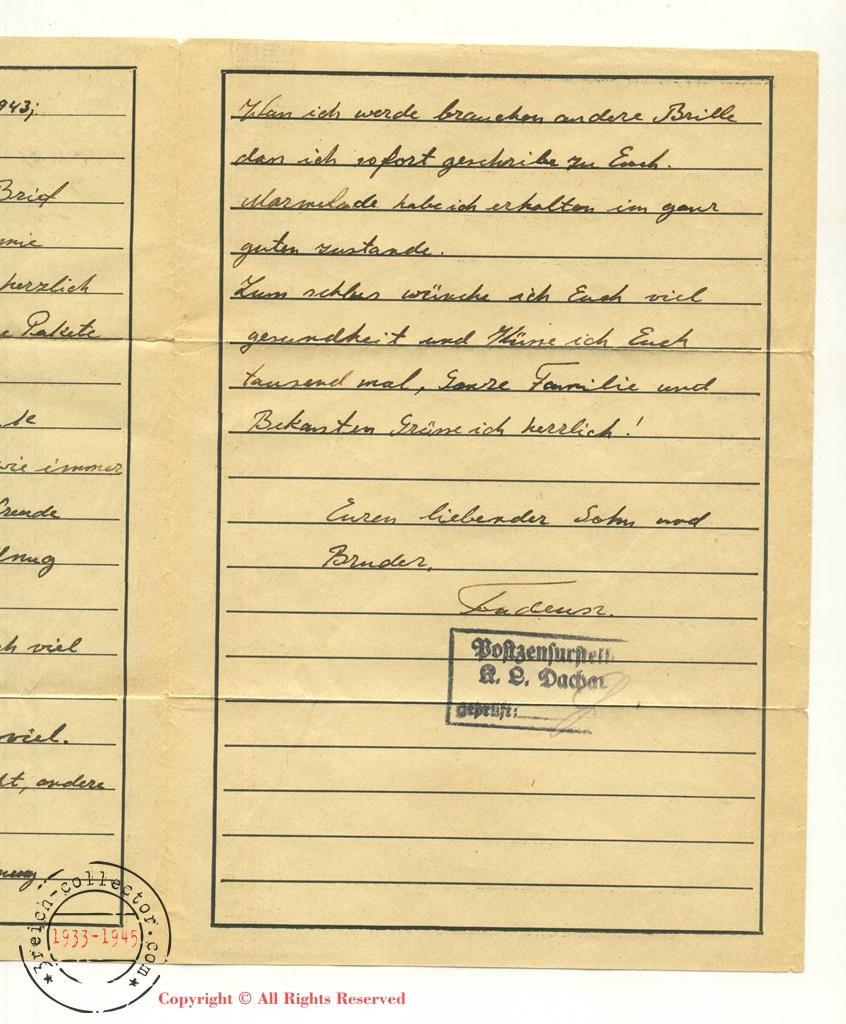 943;
Brief
mie
herzlich
Pakete
te
wie immer
freude
viel
viel.
andere
Wan ich werde brauchen andere Brille
dan ich sofort geschribe zu Euch.
Marmelade habe ich erhalten im ganz
guten zustande.
Zum schlus wünsche ich Euch viel
gesundheit und Küsse ich Euch
tausend mal, Ganze Familie und
Bekanten Grüsse ich herzlich!
Euren liebender Sohn und
Bruder,
Tadeusz.
Postzensurstell
K. L. Dachau
geprüft:
3reich-collector.com
1933-1945
Copyright © All Rights Reserved